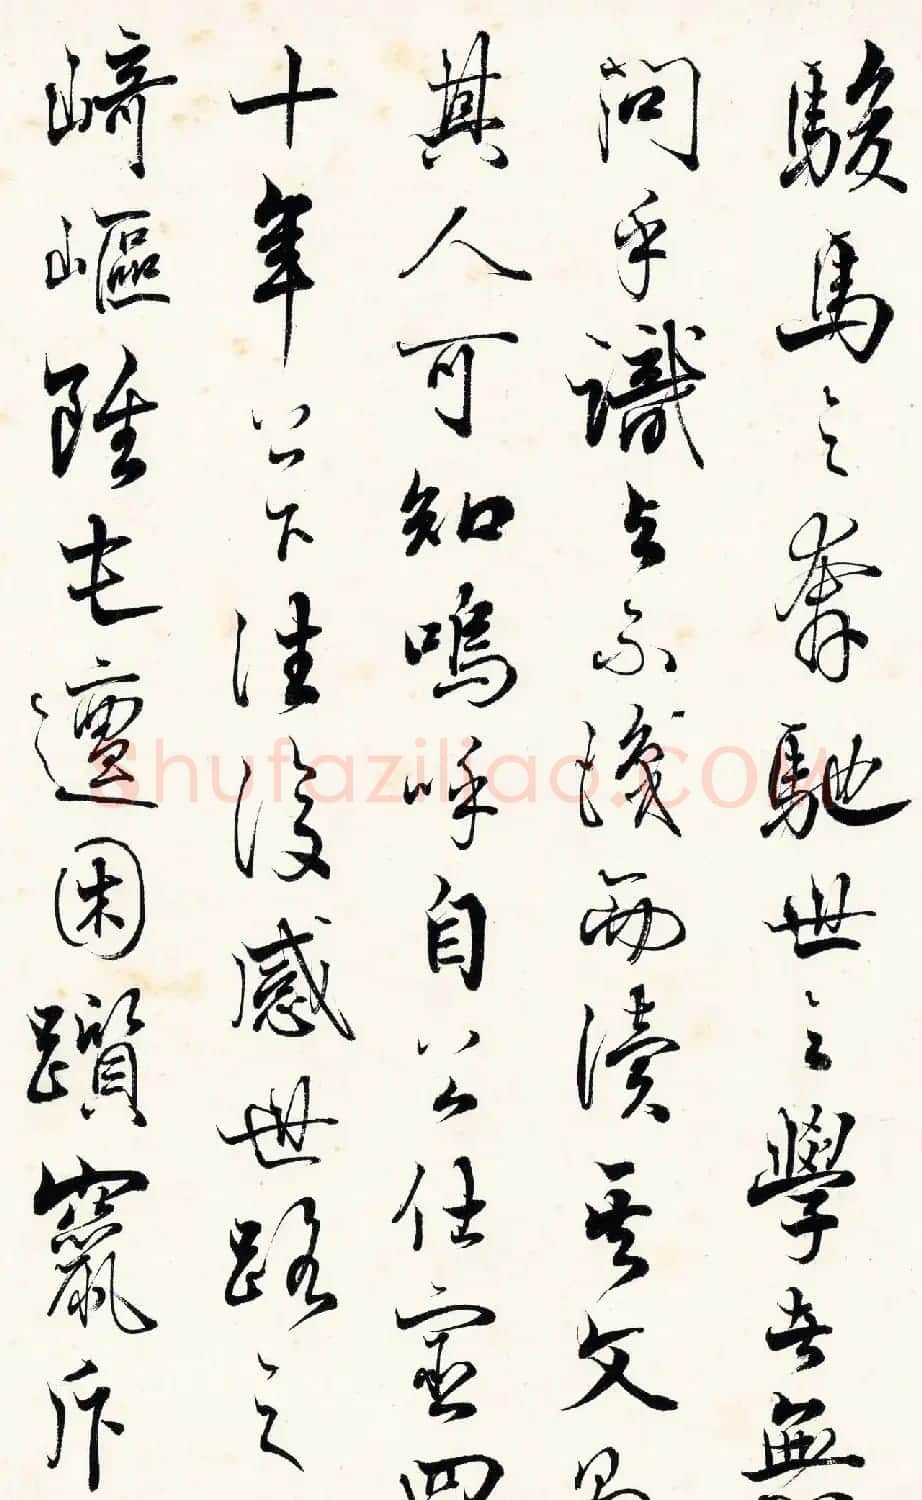 駿馬之奔馳世之學者無
問乎識与不識而讀其文則
其人可知嗚呼自公仕宦四
十年上下往復感世路之
崎嶇雖屯邅困躓竄斥
Shufaziliao.COM